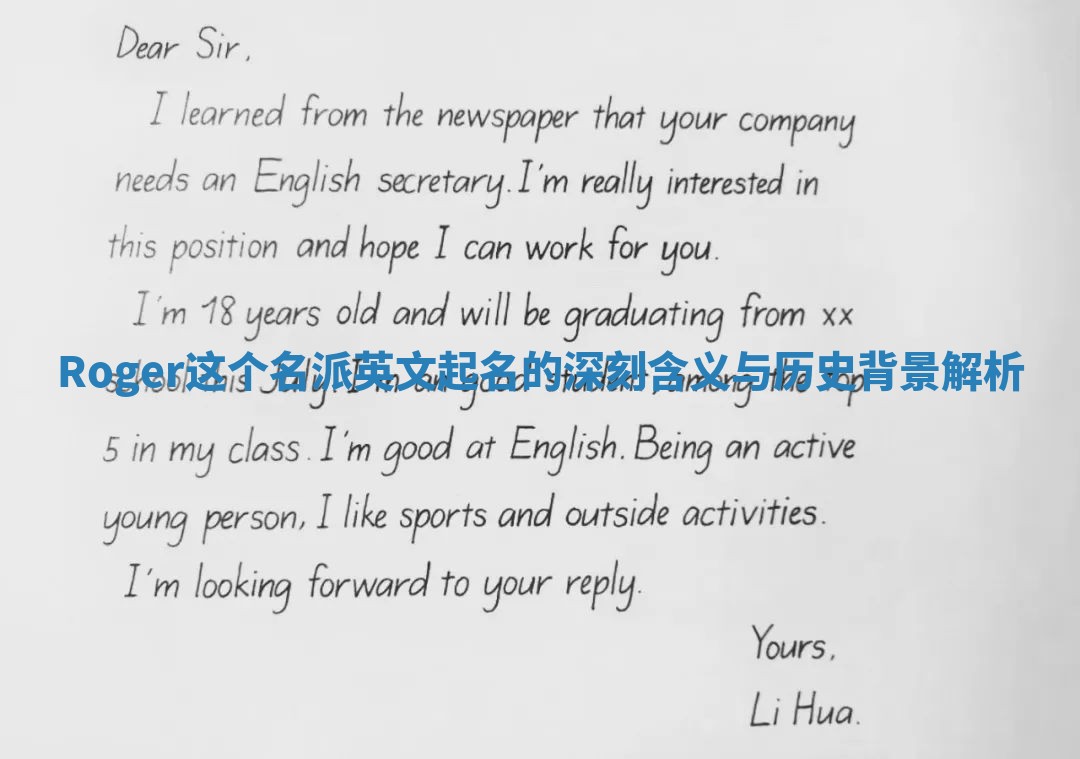 Dear Sir,
I learned from the newspaper that your company
needs an English secretary. I'm really interested in
this position and hope I can work for you.
I'm 18 years old and will be graduating from xx
Roger这个名派英文起名的深刻含义与历史背景解析
school this July. I'm an good student, among the top
5 in my class. I'm good at English. Being an active
young person, I like sports and outside activities.
I'm looking forward to your reply.
Yours,
Li Hua.